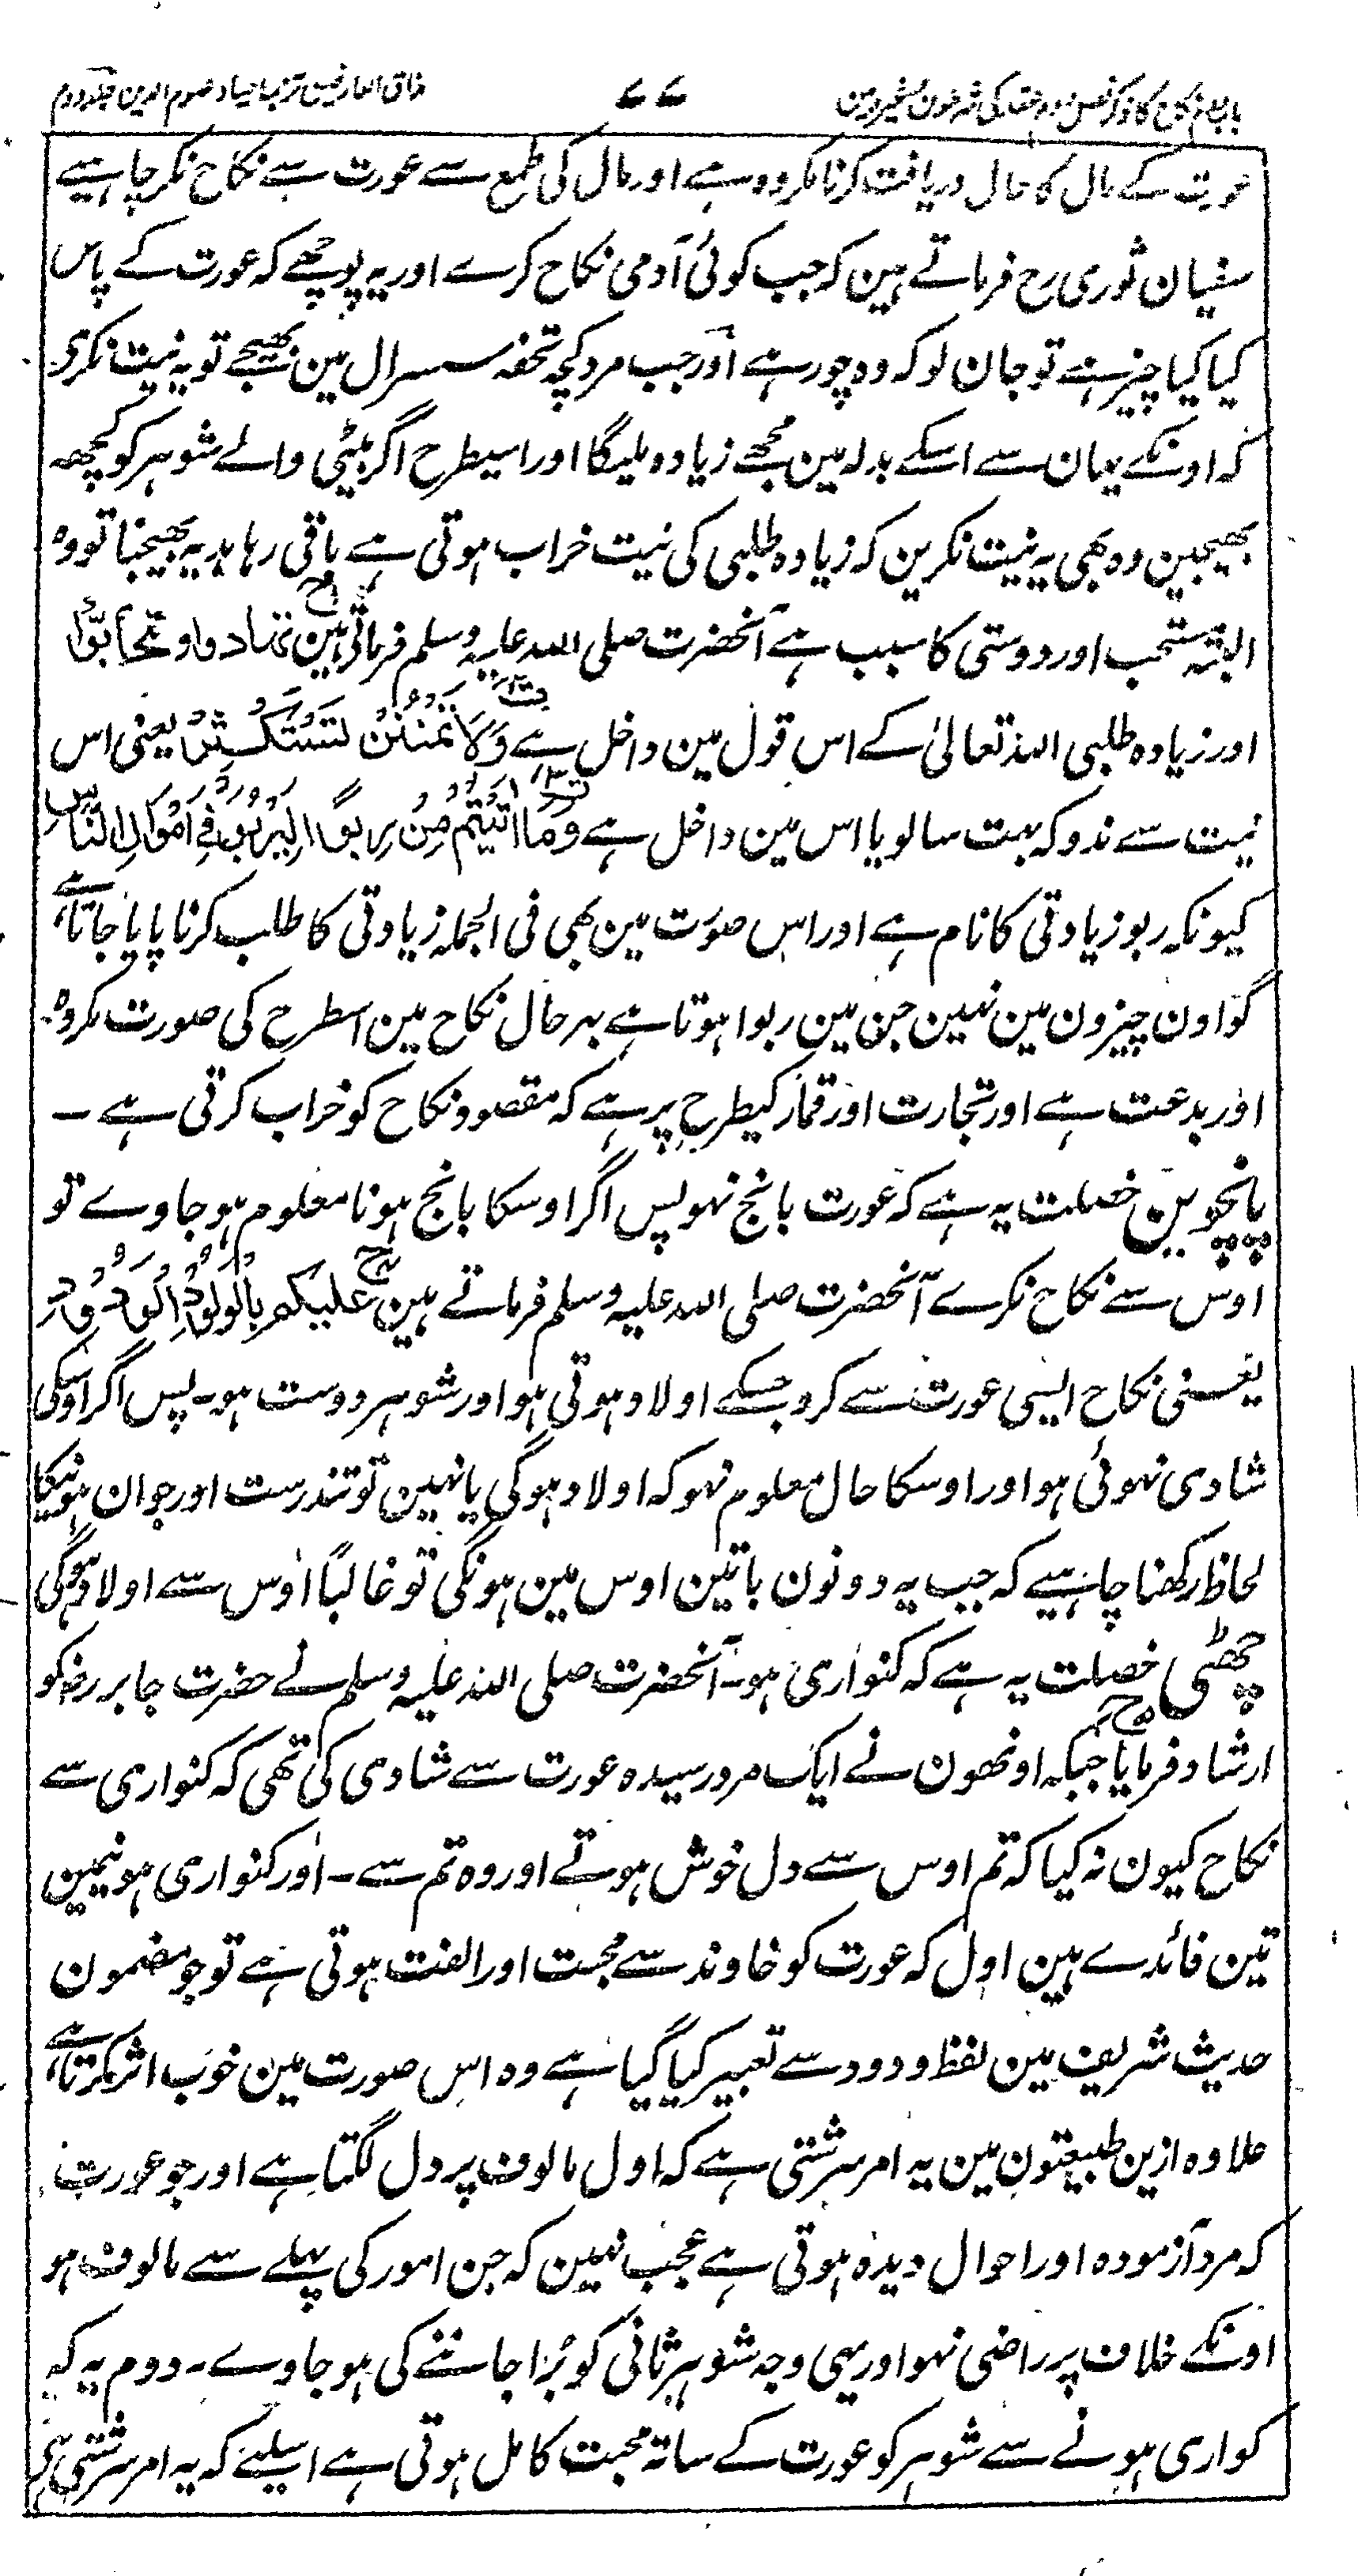 مذاق العارفین ترجمہ احیاء علوم الدین جلد دوم
۷۷
عورت کے مال کا حال دریافت کرنا مکروہ ہے اور مال کی طمع سے عورت سے نکاح نکر چاہیے
سفیان ثوری رح فرماتے ہین کہ جب کوئی آدمی نکاح کرے اور یہ پوچھے کہ عورت کے پاس
کیا کیا چیز ہے تو جان لو کہ وہ چور ہے اور جب مرد کچھ تحفہ سسرال مین بھیجے تو یہ نیت نکرے
کہ اونکے یہان سے اسکے بدلہ مین مجھے زیادہ ملیگا اور اسیطرح اگر بیٹی والے شوہر کو کچھ
بھیجین وہ بھی یہ نیت نکرین کہ زیادہ طلبی کی نیت خراب ہوتی ہے باقی رہا ہدیہ بھیجنا تو وہ
البتہ مستحب اور دوستی کا سبب ہے آنحضرت صلی اللہ علیہ وسلم فرماتے ہین تہادوا وتحابّوا
اور زیادہ طلبی اللہ تعالیٰ کے اس قول مین داخل ہے وَلَا تَمْنُنْ تَسْتَكْثِرُ یعنی اس
نیت سے ندو کہ بہت سا لو یا اس مین داخل ہے وَمَا اٰتَيْتُمْ مِنْ رِبوًا لِيَرْبُوَ فِيْ اَمْوَالِ النَّاسِ
کیونکہ ربو زیادتی کا نام ہے اور اس صورت مین بھی فی الجملہ زیادتی کا طلب کرنا پایا جاتا ہے
گو اون چیزون مین نہین جن مین ربوا ہوتا ہے بہر حال نکاح مین اسطرح کی صورت مکروہ
اور بدعت ہے اور تجارت اور قمار کیطرح پر ہے کہ مقصود نکاح کو خراب کرتی ہے ۔
پانچوین خصلت یہ ہے کہ عورت بانجھ نہو پس اگر اوسکا بانجھ ہونا معلوم ہو جاوے تو
اوس سے نکاح نکرے آنحضرت صلی اللہ علیہ وسلم فرماتے ہین عَلَیکم بِالْوَلُوْدِ الْوَدُوْدِ
یعنی نکاح ایسی عورت سے کرو جسکے اولاد ہوتی ہو اور شوہر دوست ہو۔ پس اگر اوسکی
شادی نہوئی ہو اور اوسکا حال معلوم نہو کہ اولاد ہوگی یا نہین تو تندرست اور جوان ہونیکا
لحاظ رکھنا چاہیے کہ جب یہ دونون باتین اوس مین ہونگی تو غالبًا اوس سے اولاد ہوگی
چھٹی خصلت یہ ہے کہ کنواری ہو۔ آنحضرت صلی اللہ علیہ وسلم نے حضرت جابر رضہ کو
ارشاد فرمایا جبکہ اونھون نے ایک مرد رسیدہ عورت سے شادی کی تھی کہ کنواری سے
نکاح کیون نہ کیا کہ تم اوس سے دل خوش ہوتے اور وہ تم سے ۔ اور کنواری ہونیمین
تین فائدے ہین اول کہ عورت کو خاوند سے محبت اور الفت ہوتی ہے تو جو مضمون
حدیث شریف مین لفظ ودود سے تعبیر کیا گیا ہے وہ اس صورت مین خوب اثر کرتا ہے
علاوہ ازین طبیعتون مین یہ امر سرشتی ہے کہ اول مالوف پر دل لگتا ہے اور جو عورت
کہ مرد آزمودہ اور احوال دیدہ ہوتی ہے عجب نہین کہ جن امور کی پہلے سے مالوف ہو
اونکے خلاف پر راضی نہو اور یہی وجہ شوہر ثانی کو بُرا جاننے کی ہو جاوے ۔ دوم یہ کہ
کواری ہونے سے شوہر کو عورت کے ساتہ محبت کامل ہوتی ہے اسلیئے کہ یہ امر سرشتی ہے